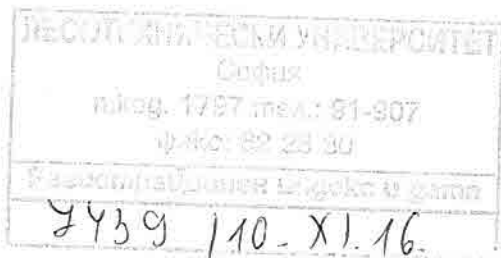 ЛЕСОТЕХНИЧЕСКИ УНИВЕРСИТЕТ
София
п.код. 1797 тел.: 91-907
факс: 62 28 30
Регистрационен индекс и дата
7439 / 10. XI. 16.